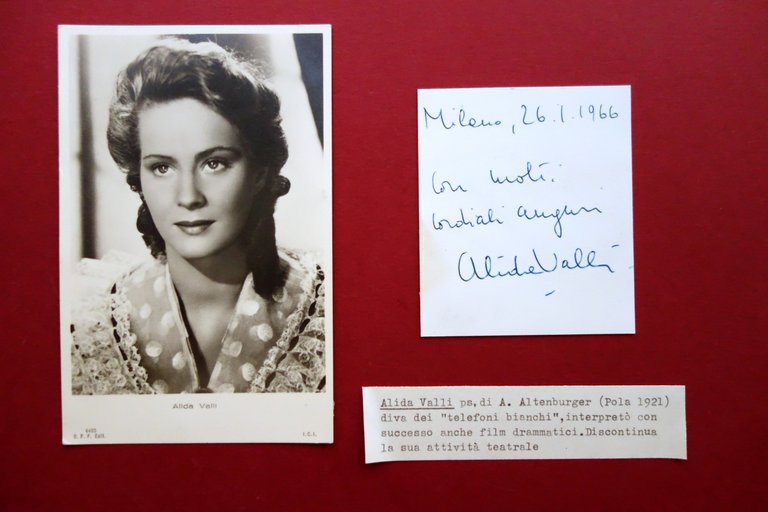 Alida Valli
6485
B. F. F. Edit.
I.C.I.
Milano, 26.1.1966
Con molti
cordiali auguri
Alida Valli
Alida Valli ps. di A. Altenburger (Pola 1921)
diva dei "telefoni bianchi", interpretò con
successo anche film drammatici. Discontinua
la sua attività teatrale